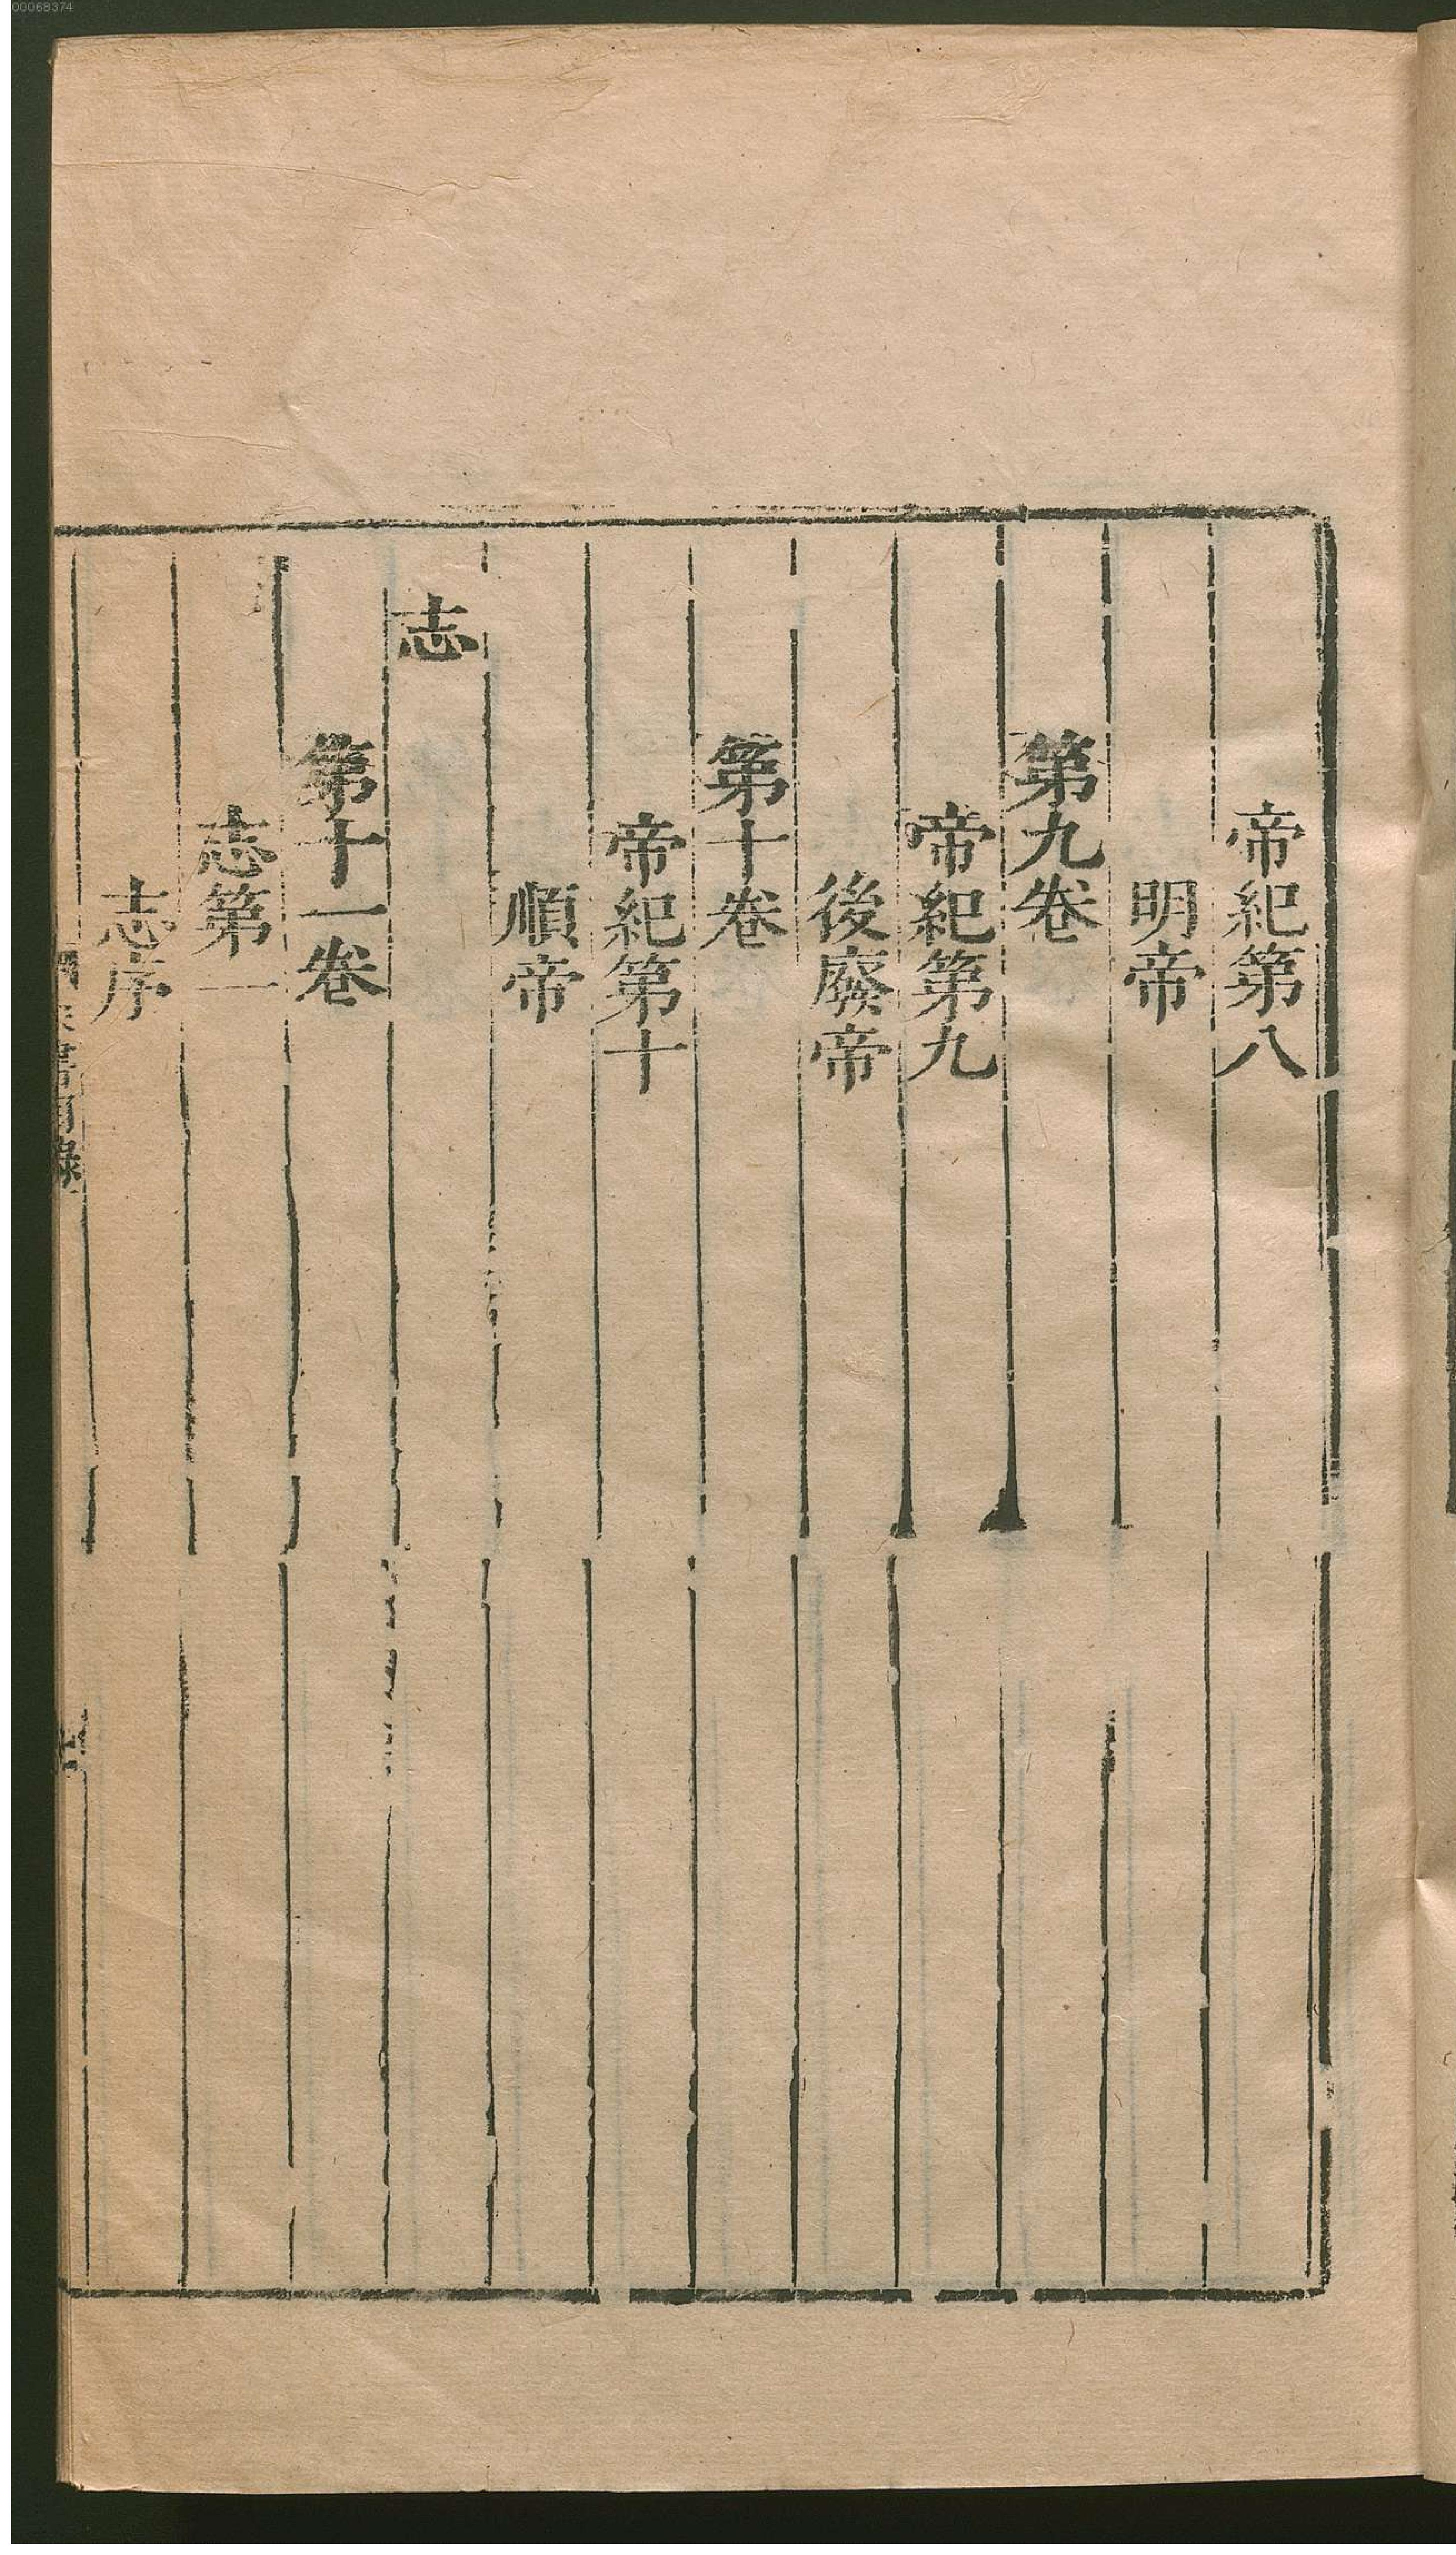 帝紀第八
明帝
第九卷
帝紀第九
後廢帝
第十卷
帝紀第十
順帝
志
第十一卷
志第一
志序
書目錄
00068374